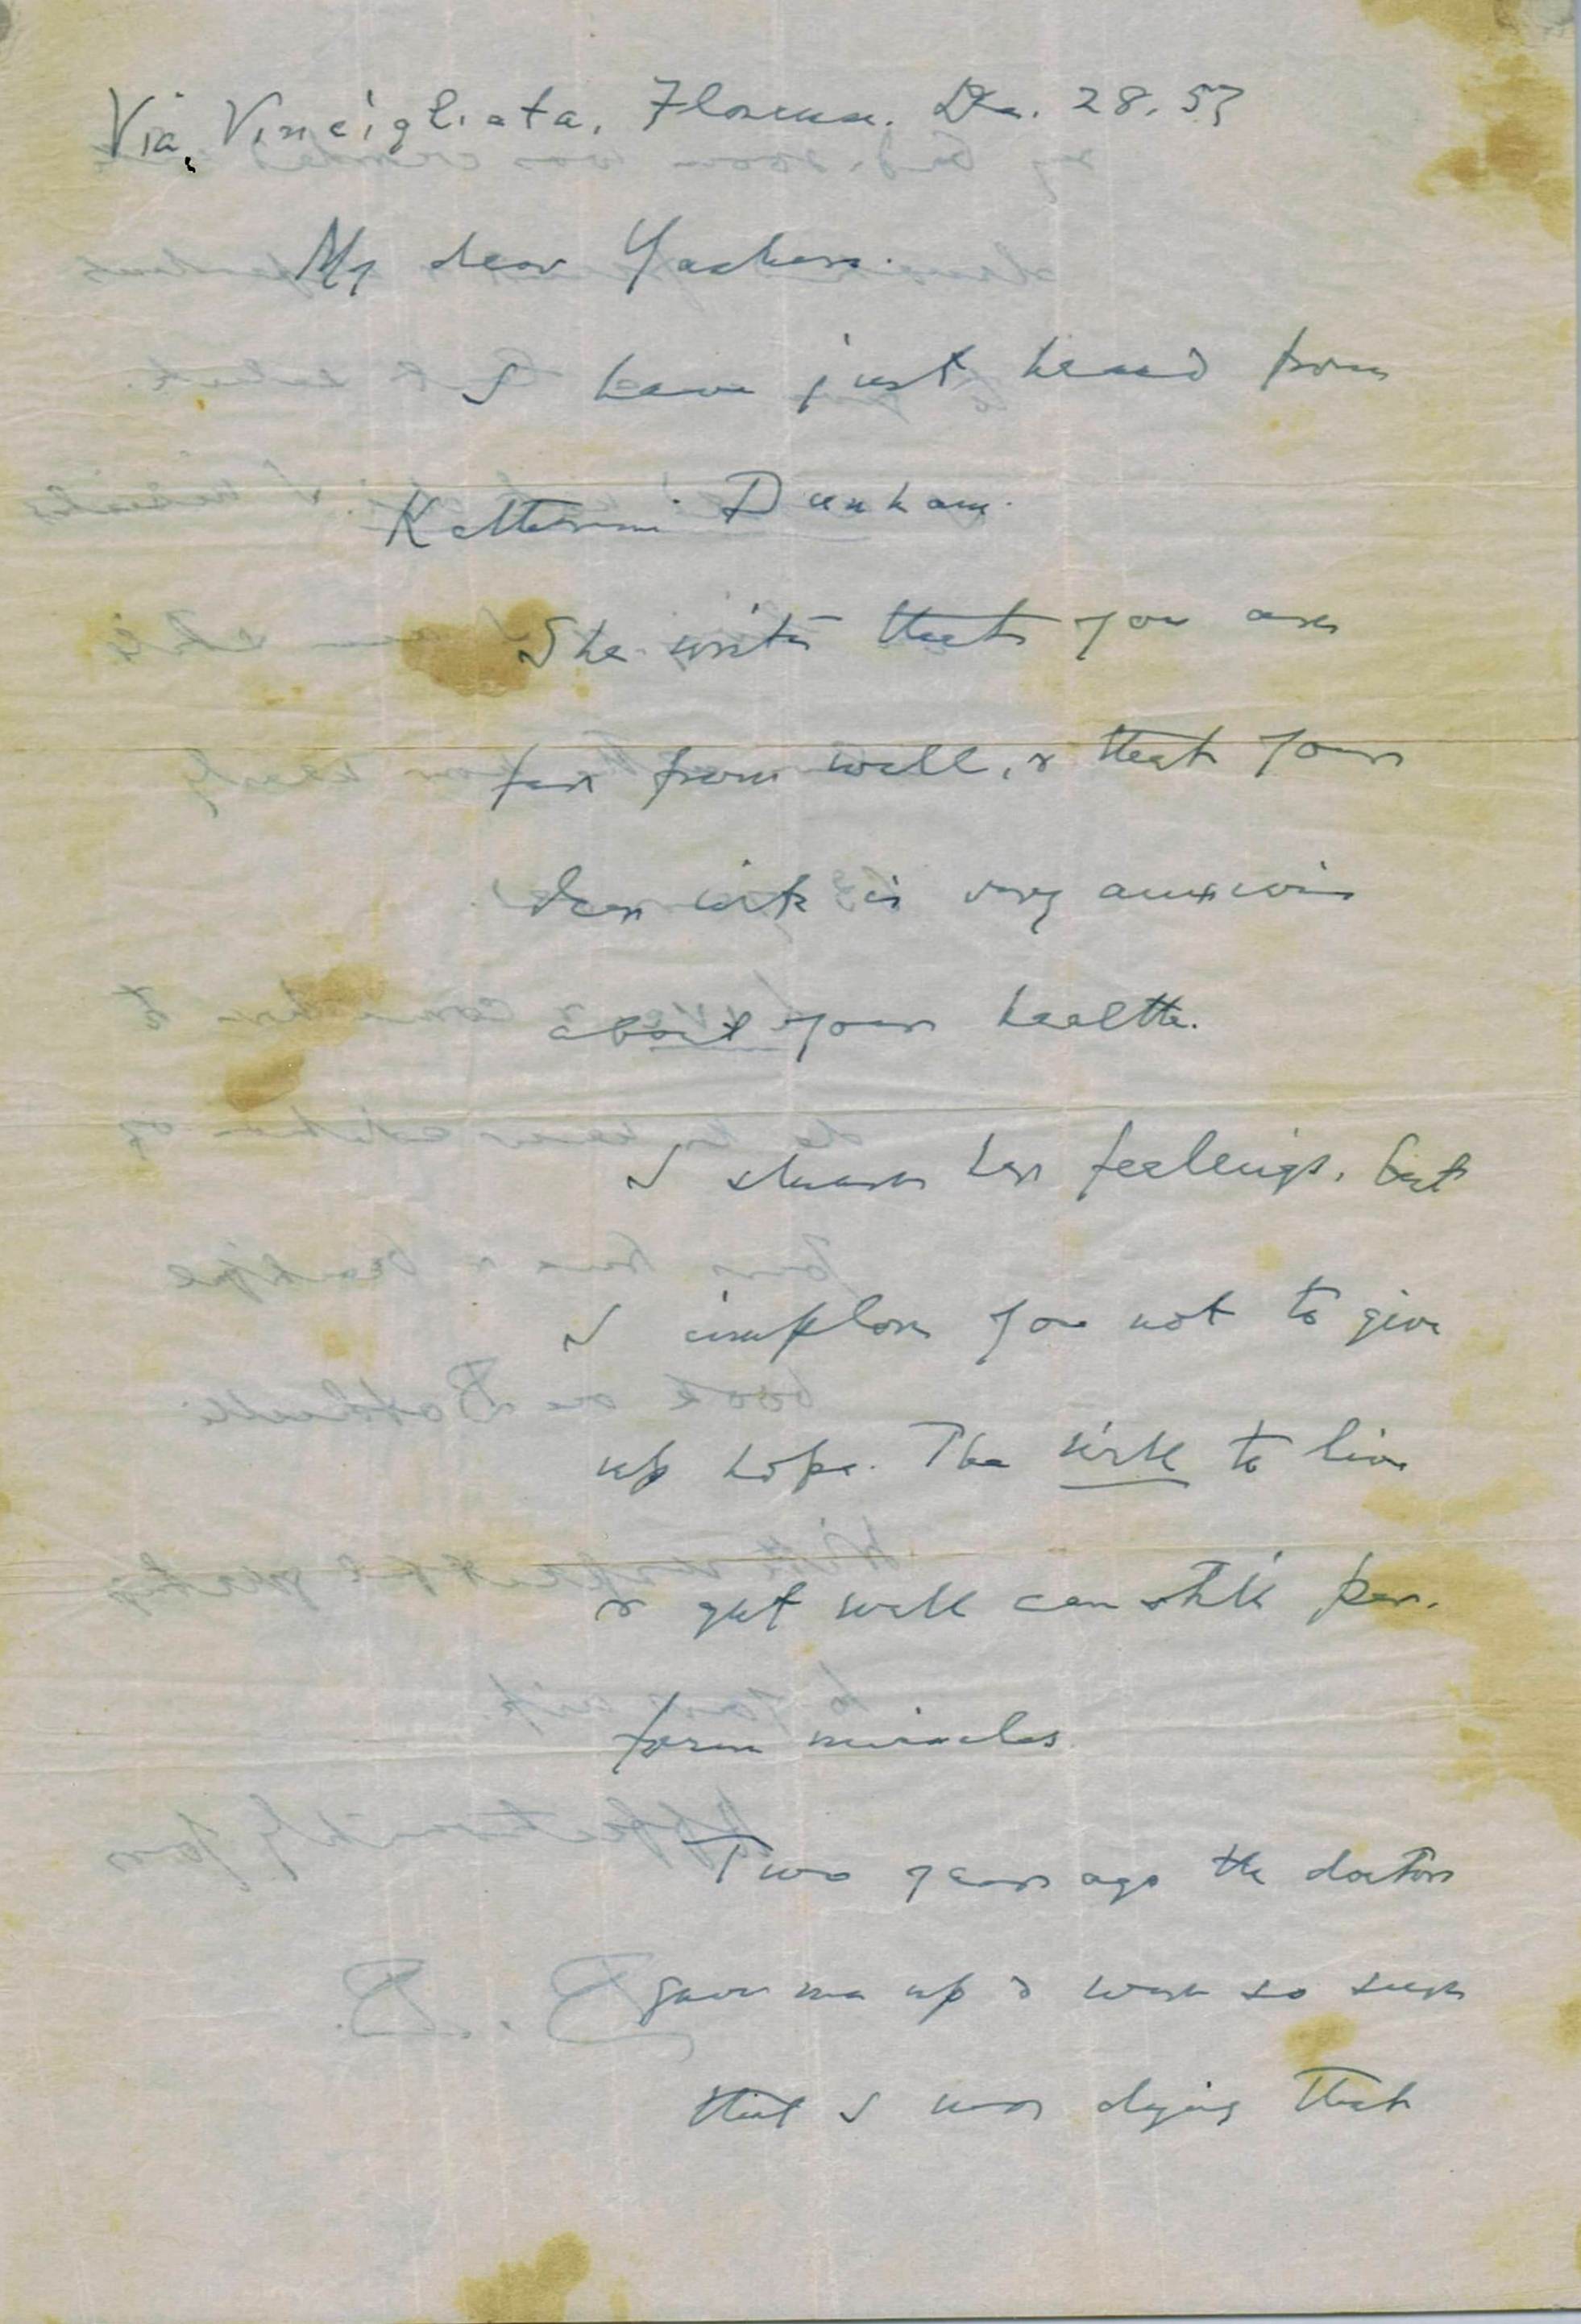 Via, Vincigliata, Florence. Dec. 28. 57
My dear Yashiro.
I have just heard from
Katherine Dunham.
She writes that you are
far from well, & that your
dear wife is very anxious
about your health.
I share her feelings, but
I implore you not to give
up hope. The will to live
& get well can still per-
form miracles.
Two years ago the doctors
gave me up & were so sure
that I was dying that